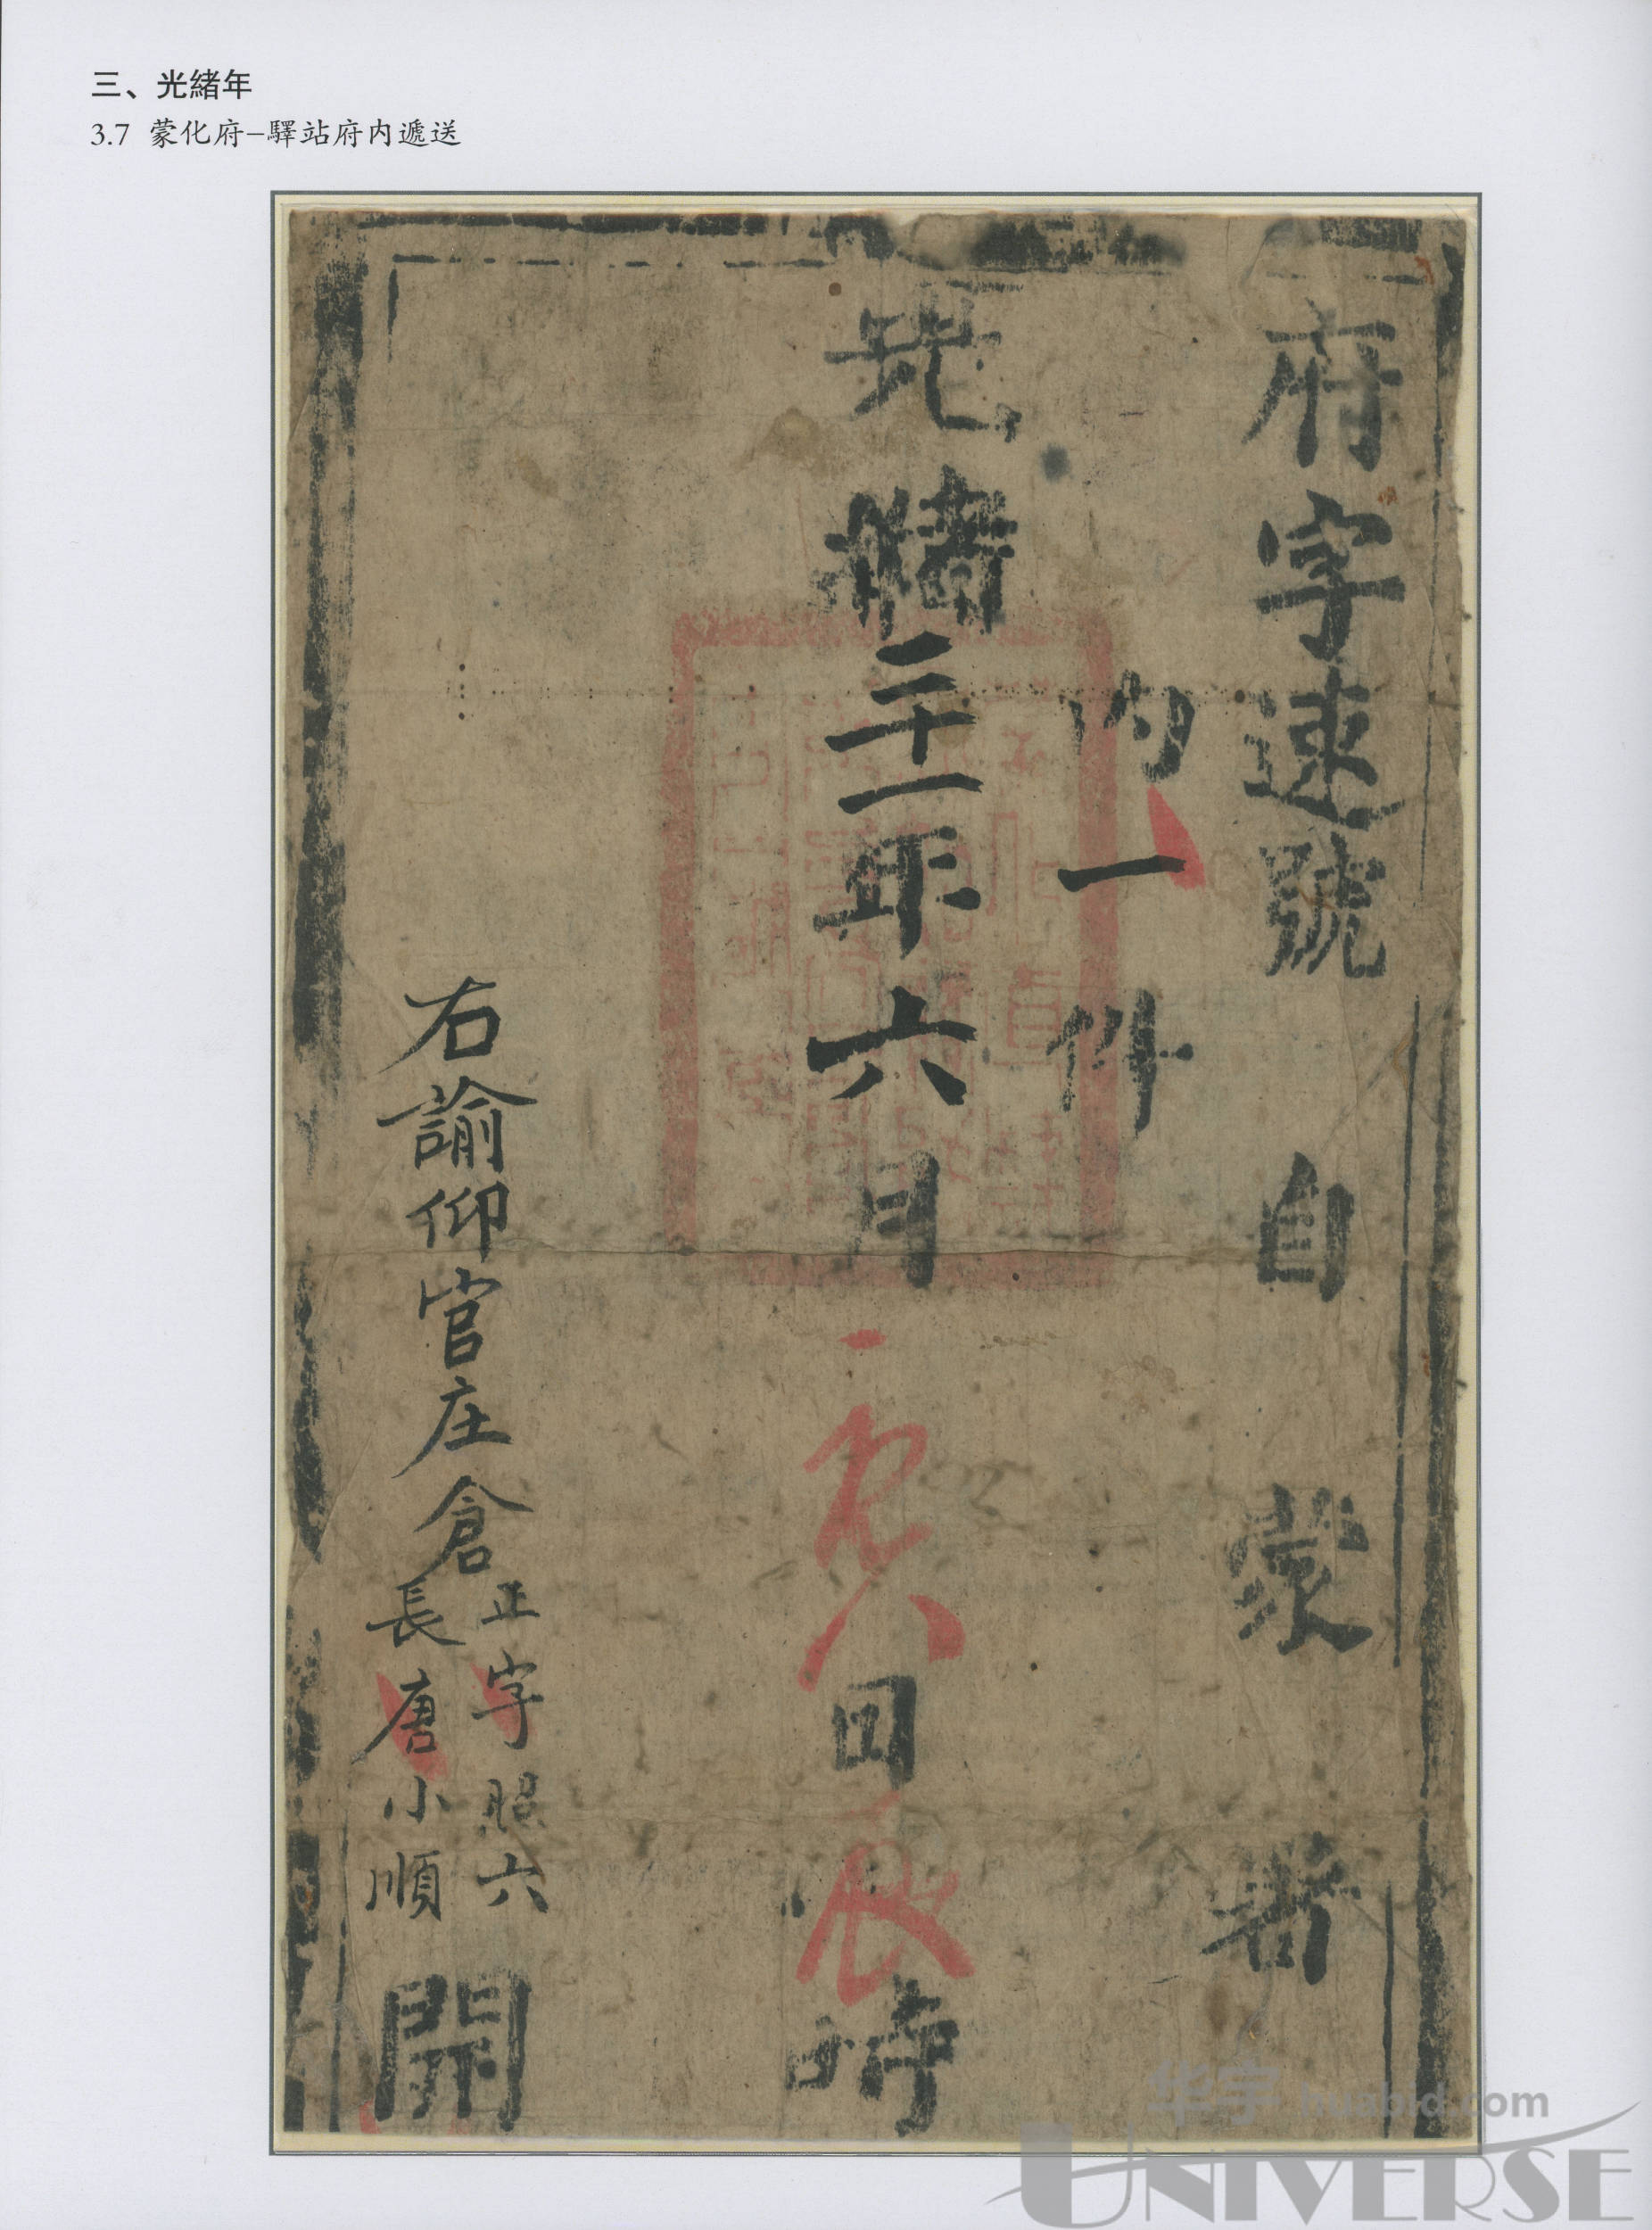 三、光緒年
3.7 蒙化府–驛站府内遞送
府字速號 自蒙署
内一件
光緒二十一年六月 日辰時
右諭仰官庄倉
正字照六
長唐小順
開
华宇 huabid.com
UNIVERSE